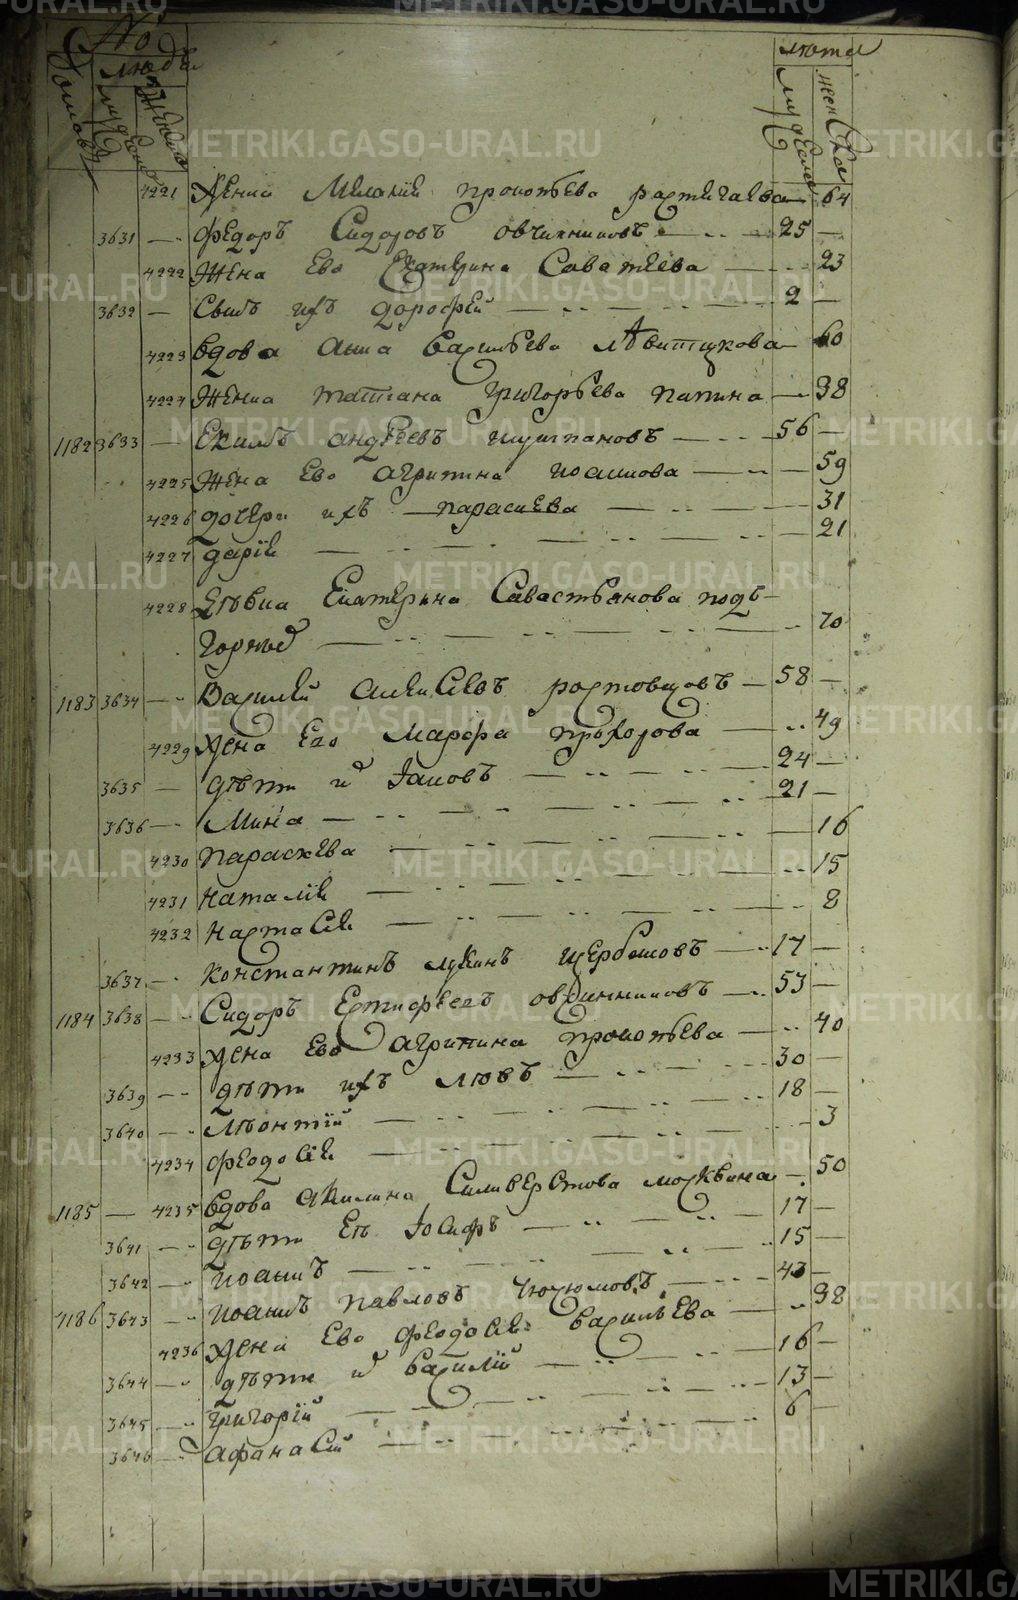 №
людей
лѣта
домовъ
мужеска
женска
мужеска
женска
4221 Жена Мелания прокопьева растегаева — 64
3631 — Федоръ Сидоровъ овчинниковъ — 25 —
4222 Жена Ево Екатерина Саватеева — 23
3632 — Сынъ ихъ дорофей — 2 —
4223 вдова анна васильева — 60
4224 Женка татиана григорьева папина — 38
1182 3633 — Екимъ андреевъ — 56 —
4225 Жена Ево агрипина иоаннова — 59
4226 дочери ихъ параскева — 31
4227 дарія — 21
4228 дѣвка Екатерина Савастьянова подъ-
горныхъ — 70
1183 3634 — Василей алексѣевъ ростовцовъ — 58 —
4229 Жена Ево Марфа прохорова — 49
3635 — дѣти их Іаковъ — 24 —
3636 — Мина — 21 —
4230 параскева — 16
4231 наталія — 15
4232 настасія — 8
3637 — константинъ лукинъ щербаковъ — 17 —
1184 3638 — Сидоръ Епифеевъ овчинниковъ — 53 —
4233 Жена Ево агрипина прокопьева — 40
3639 — дѣти ихъ — 30 —
3640 — леонтій — 18 —
4234 феодосія — 3
1185 — 4235 вдова акилина Силиверстова москвина — 50
3641 — дѣти Еѣ Іосифъ — 17 —
3642 — иоаннъ — 15 —
1186 3643 — иоаннъ павловъ — 43 —
4236 Жена Ево феодосія васильева — 38
3644 — дѣти их василій — 16 —
3645 — григорій — 13 —
3646 — афанасій — 6 —
METRIKI.GASO-URAL.RU